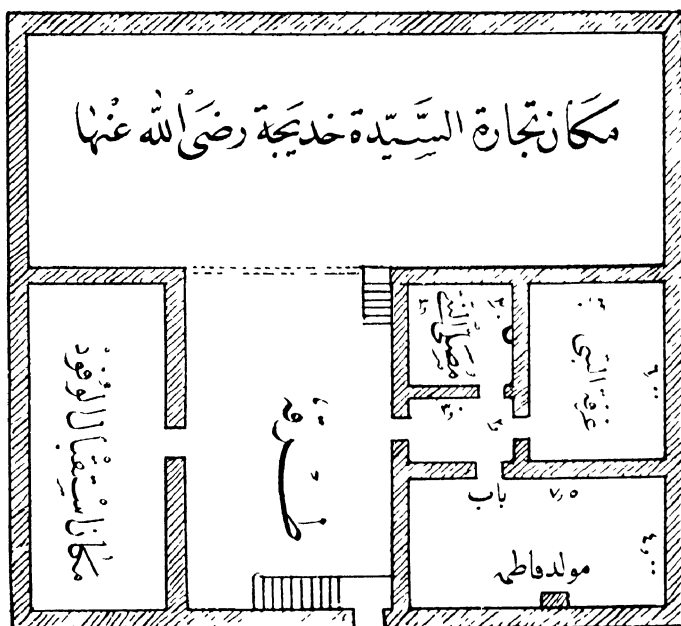 مكان تجارة السَّيِّدة خديجة رضَى ٱللّٰه عنْها
مكان استِقبال الوفود
طرقة
مصلّى النبي
غرفة النبي
٦,٠٠
باب
٧,٥
مولد فاطمہ
٤,٠٠